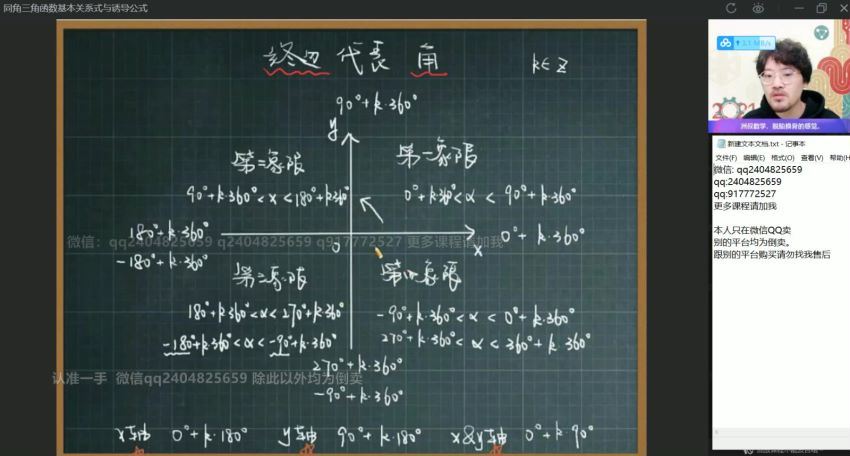 同角三角函数基本关系式与诱导公式
终边代表角
k∈Z
90°+k·360°
y
第二象限
第一象限
90°+k·360°<α<180°+k·360°
0°+k·360°<α<90°+k·360°
180°+k·360°
-180°+k·360°
0°+k·360°
x
微信：qq2404825659 q2404825659 q917772527 更多课程请加我
第三象限
第四象限
180°+k·360°<α<270°+k·360°
-90°+k·360°<α<0°+k·360°
-180°+k·360°<α<-90°+k·360°
270°+k·360°<α<360°+k·360°
270°+k·360°
-90°+k·360°
认准一手 微信qq2404825659 除此以外均为倒卖
x轴 0°+k·180°
y轴 90°+k·180°
x&y轴 0°+k·90°
洲叔数学，脱胎换骨的感觉。
新建文本文档.txt - 记事本
文件(F) 编辑(E) 格式(O) 查看(V) 帮助(H)
微信: qq2404825659
qq:2404825659
qq:917772527
更多课程请加我
本人只在微信QQ卖
别的平台均为倒卖。
跟别的平台购买请勿找我售后